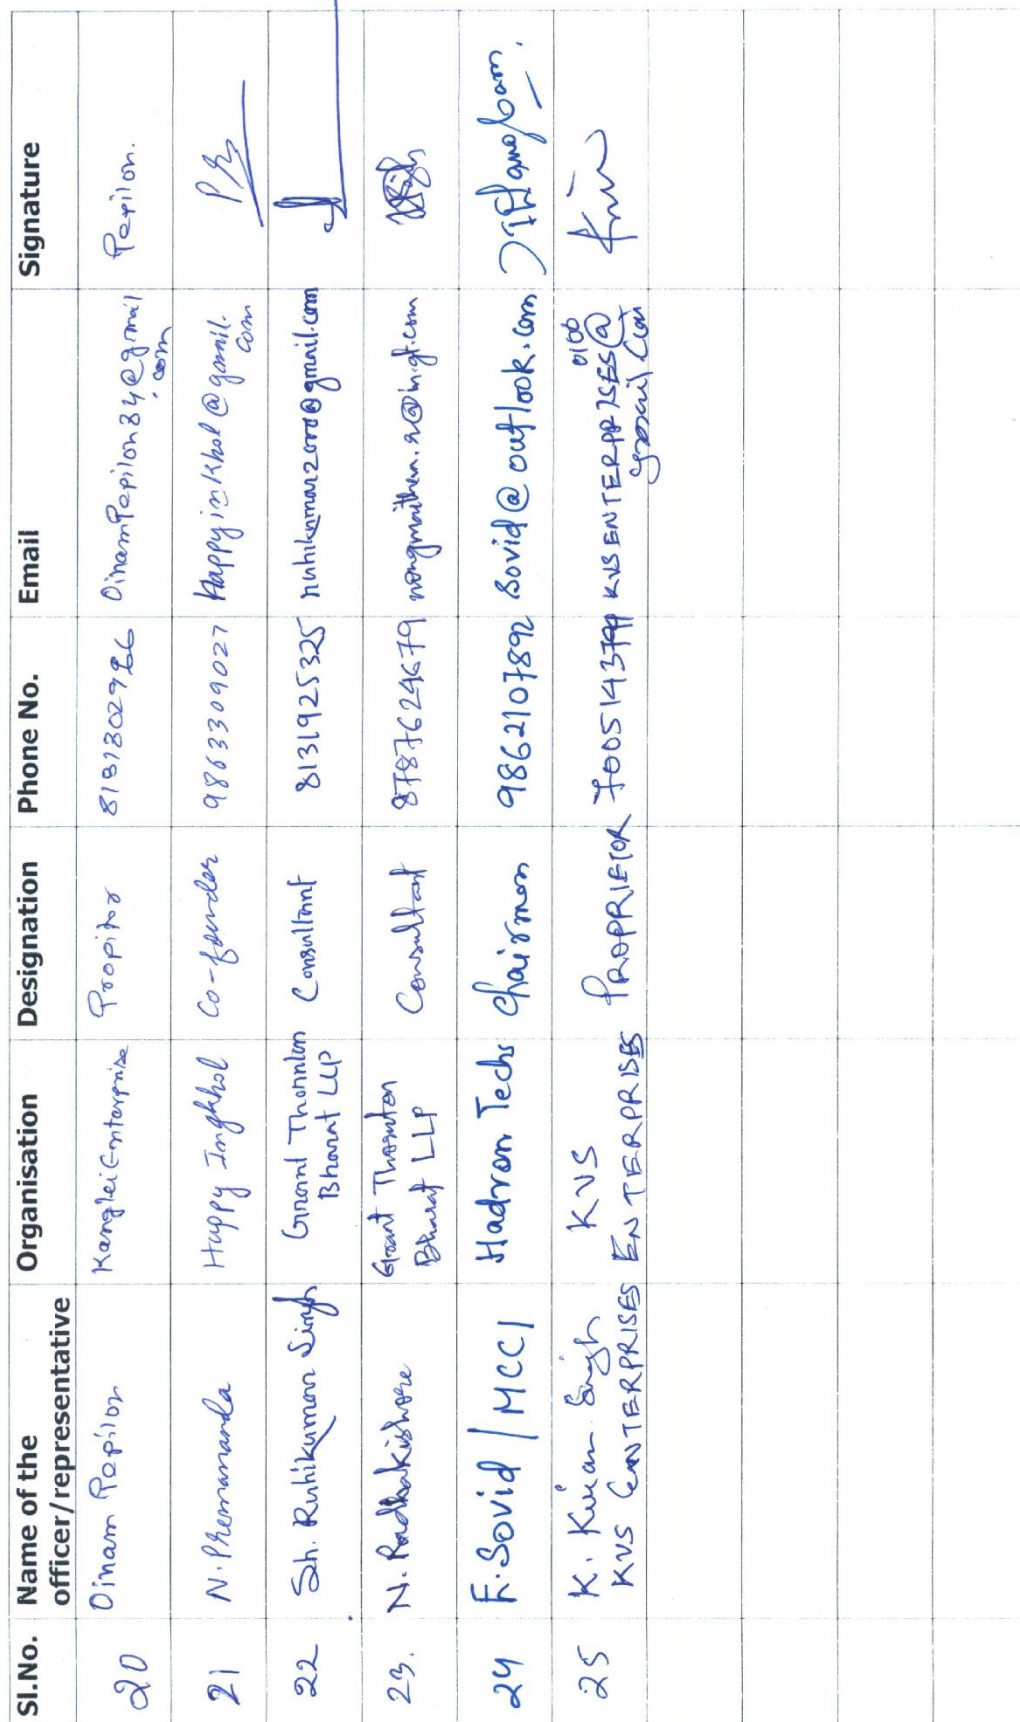 Sl.No. Name of the officer/representative Organisation Designation Phone No. Email Signature
20 Oinam Papilon Kanglei Enterprise Propitor OinamPapilon34@gmail.com Papilon.
21 N. Premananda Happy Ingkhol Co-founder 9863309027 Happyinkhol@gamil.com
22 Sh. Ruhikumar Singh Grant Thornton Bharat LLP Consultant 8131925325
23. N. Radhakishore Grant Thornton Bharat LLP Consultant 8787624679
24 F. Sovid / MCCI Hadron Techs Chairman 9862107892 Sovid@outlook.com
25 K. Kuian Singh KVS ENTERPRISES
KVS ENTERPRISES PROPRIETOR KVSENTERPRISES0100@gmail.com